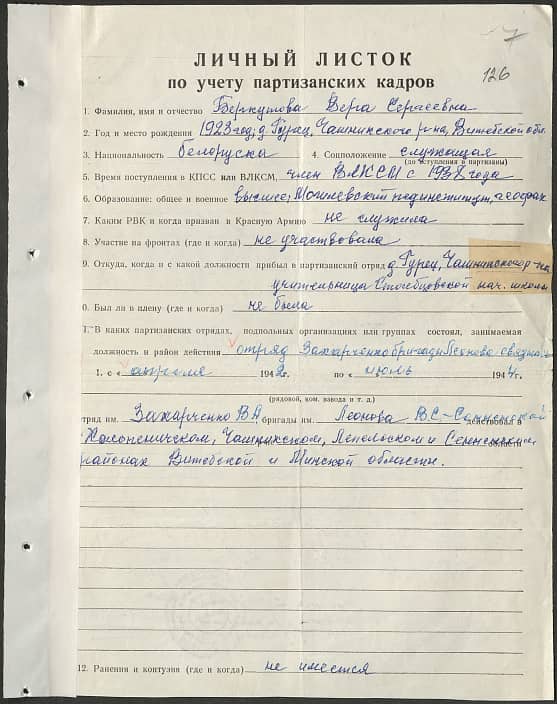 7
126
ЛИЧНЫЙ ЛИСТОК
по учету партизанских кадров
1. Фамилия, имя и отчество Беркутова Вера Сергеевна
2. Год и место рождения 1923 год, д. Гурец, Чашникского р-на, Витебской обл.
3. Национальность белоруска 4. Соцположение служащая
(до вступления в партизаны)
5. Время поступления в КПСС или ВЛКСМ, член ВЛКСМ с 1938 года
6. Образование: общее и военное высшее, Могилевский пединститут, геофак
7. Каким РВК и когда призван в Красную Армию не служила
8. Участие на фронтах (где и когда) не участвовала
9. Откуда, когда и с какой должности прибыл в партизанский отряд д. Гурец, Чашникского р-на
учительница нач. школы
0. Был ли в плену (где и когда) не была
1. В каких партизанских отрядах, подпольных организациях или группах состоял, занимаемая
должность и район действия отряд Захарченко бригады Леонова связная
1. с « апреля 1942г. по « июль 1944г.
(рядовой, ком. взвода и т. д.)
тряд им. Захарченко В.А. бригады им. Леонова В.С. - Сенненской действовал в
Холопеничском, Чашникском, Лепельском и Сенненском области
районах Витебской и Минской области.
12. Ранения и контузия (где и когда) не имеется